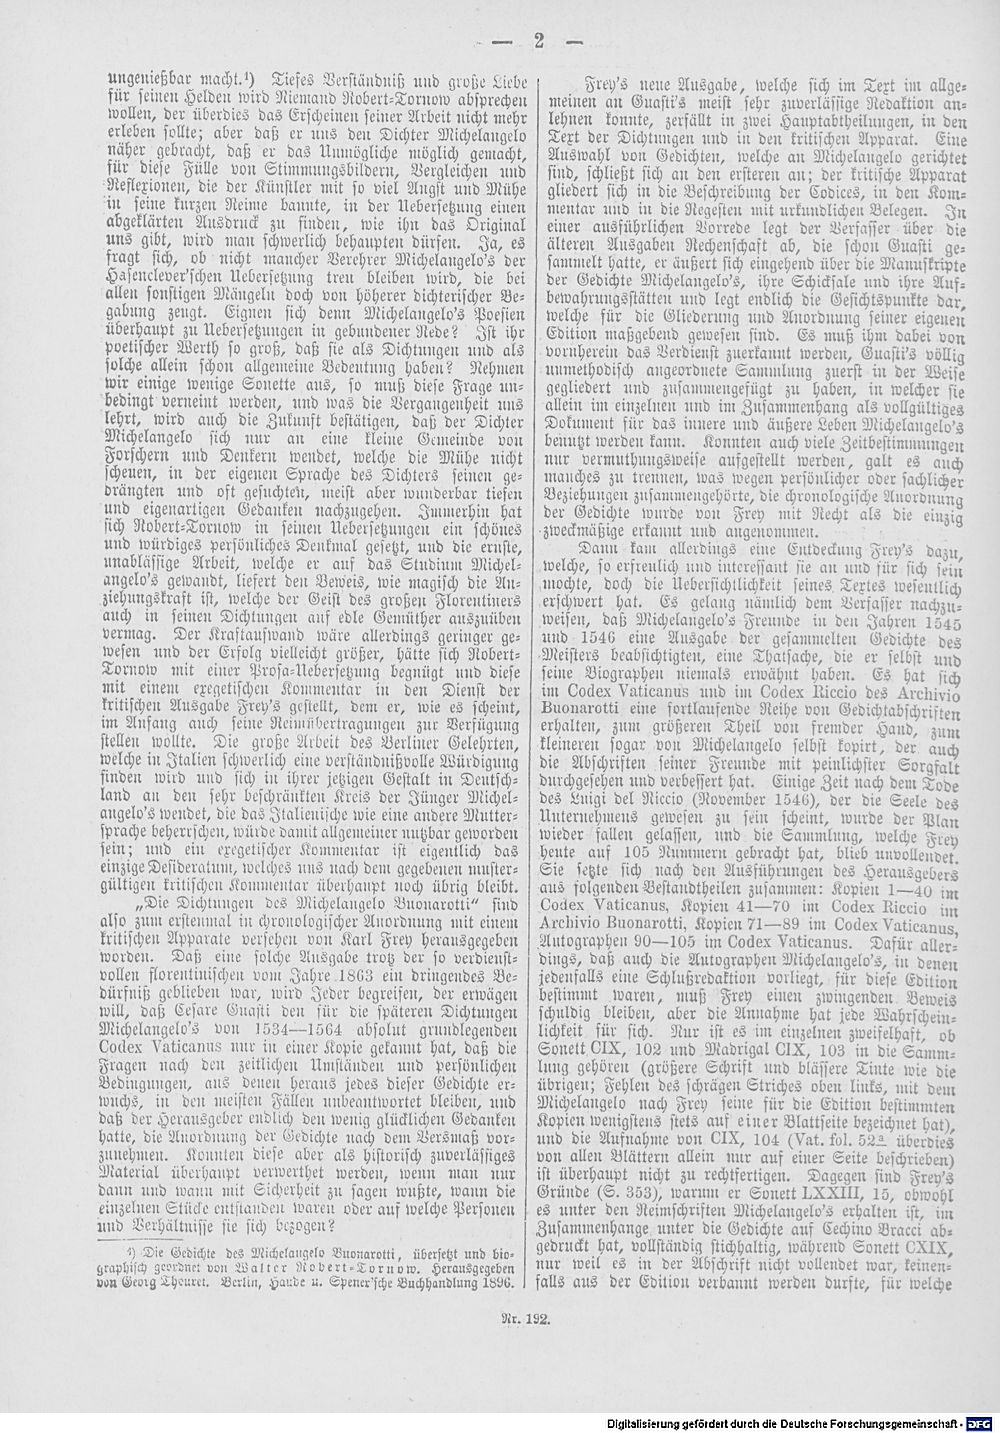 — 2 —
ungenießbar macht.¹) Tiefes Verständniß und große Liebe
für seinen Helden wird Niemand Robert-Tornow absprechen
wollen, der überdies das Erscheinen seiner Arbeit nicht mehr
erleben sollte; aber daß er uns den Dichter Michelangelo
näher gebracht, daß er das Unmögliche möglich gemacht,
für diese Fülle von Stimmungsbildern, Vergleichen und
Reflexionen, die der Künstler mit so viel Angst und Mühe
in seine kurzen Reime bannte, in der Uebersetzung einen
abgeklärten Ausdruck zu finden, wie ihn das Original
uns gibt, wird man schwerlich behaupten dürfen. Ja, es
fragt sich, ob nicht mancher Verehrer Michelangelo's der
Hasenclever'schen Uebersetzung treu bleiben wird, die bei
allen sonstigen Mängeln doch von höherer dichterischer Be-
gabung zeugt. Eignen sich denn Michelangelo's Poesien
überhaupt zu Uebersetzungen in gebundener Rede? Ist ihr
poetischer Werth so groß, daß sie als Dichtungen und als
solche allein schon allgemeine Bedeutung haben? Nehmen
wir einige wenige Sonette aus, so muß diese Frage un-
bedingt verneint werden, und was die Vergangenheit uns
lehrt, wird auch die Zukunft bestätigen, daß der Dichter
Michelangelo sich nur an eine kleine Gemeinde von
Forschern und Denkern wendet, welche die Mühe nicht
scheuen, in der eigenen Sprache des Dichters seinen ge-
drängten und oft gesuchten, meist aber wunderbar tiefen
und eigenartigen Gedanken nachzugehen. Immerhin hat
sich Robert-Tornow in seinen Uebersetzungen ein schönes
und würdiges persönliches Denkmal gesetzt, und die ernste,
unablässige Arbeit, welche er auf das Studium Michel-
angelo's gewandt, liefert den Beweis, wie magisch die An-
ziehungskraft ist, welche der Geist des großen Florentiners
auch in seinen Dichtungen auf edle Gemüther auszuüben
vermag. Der Kraftaufwand wäre allerdings geringer ge-
wesen und der Erfolg vielleicht größer, hätte sich Robert-
Tornow mit einer Prosa-Uebersetzung begnügt und diese
mit einem exegetischen Kommentar in den Dienst der
kritischen Ausgabe Frey's gestellt, dem er, wie es scheint,
im Anfang auch seine Reimübertragungen zur Verfügung
stellen wollte. Die große Arbeit des Berliner Gelehrten,
welche in Italien schwerlich eine verständnißvolle Würdigung
finden wird und sich in ihrer jetzigen Gestalt in Deutsch-
land an den sehr beschränkten Kreis der Jünger Michel-
angelo's wendet, die das Italienische wie eine andere Mutter-
sprache beherrschen, würde damit allgemeiner nutzbar geworden
sein; und ein exegetischer Kommentar ist eigentlich das
einzige Desideratum, welches uns nach dem gegebenen muster-
gültigen kritischen Kommentar überhaupt noch übrig bleibt.
„Die Dichtungen des Michelangelo Buonarotti“ sind
also zum erstenmal in chronologischer Anordnung mit einem
kritischen Apparate versehen von Karl Frey herausgegeben
worden. Daß eine solche Ausgabe trotz der so verdienst-
vollen florentinischen vom Jahre 1863 ein dringendes Be-
dürfniß geblieben war, wird Jeder begreifen, der erwägen
will, daß Cesare Guasti den für die späteren Dichtungen
Michelangelo's von 1534—1564 absolut grundlegenden
Codex Vaticanus nur in einer Kopie gekannt hat, daß die
Fragen nach den zeitlichen Umständen und persönlichen
Bedingungen, aus denen heraus jedes dieser Gedichte er-
wuchs, in den meisten Fällen unbeantwortet bleiben, und
daß der Herausgeber endlich den wenig glücklichen Gedanken
hatte, die Anordnung der Gedichte nach dem Versmaß vor-
zunehmen. Konnten diese aber als historisch zuverlässiges
Material überhaupt verwerthet werden, wenn man nur
dann und wann mit Sicherheit zu sagen wußte, wann die
einzelnen Stücke entstanden waren oder auf welche Personen
und Verhältnisse sie sich bezogen?
¹) Die Gedichte des Michelangelo Buonarotti, übersetzt und bio-
graphisch geordnet von Walter Robert-Tornow. Herausgegeben
von Georg Thouret. Berlin, Haude u. Spener'sche Buchhandlung 1896.
Frey's neue Ausgabe, welche sich im Text im allge-
meinen an Guasti's meist sehr zuverlässige Redaktion an-
lehnen konnte, zerfällt in zwei Hauptabtheilungen, in den
Text der Dichtungen und in den kritischen Apparat. Eine
Auswahl von Gedichten, welche an Michelangelo gerichtet
sind, schließt sich an den ersteren an; der kritische Apparat
gliedert sich in die Beschreibung der Codices, in den Kom-
mentar und in die Regesten mit urkundlichen Belegen. In
einer ausführlichen Vorrede legt der Verfasser über die
älteren Ausgaben Rechenschaft ab, die schon Guasti ge-
sammelt hatte, er äußert sich eingehend über die Manuskripte
der Gedichte Michelangelo's, ihre Schicksale und ihre Auf-
bewahrungsstätten und legt endlich die Gesichtspunkte dar,
welche für die Gliederung und Anordnung seiner eigenen
Edition maßgebend gewesen sind. Es muß ihm dabei von
vornherein das Verdienst zuerkannt werden, Guasti's völlig
unmethodisch angeordnete Sammlung zuerst in der Weise
gegliedert und zusammengefügt zu haben, in welcher sie
allein im einzelnen und im Zusammenhang als vollgültiges
Dokument für das innere und äußere Leben Michelangelo's
benutzt werden kann. Konnten auch viele Zeitbestimmungen
nur vermuthungsweise aufgestellt werden, galt es auch
manches zu trennen, was wegen persönlicher oder sachlicher
Beziehungen zusammengehörte, die chronologische Anordnung
der Gedichte wurde von Frey mit Recht als die einzig
zweckmäßige erkannt und angenommen.
Dann kam allerdings eine Entdeckung Frey's dazu,
welche, so erfreulich und interessant sie an und für sich sein
mochte, doch die Uebersichtlichkeit seines Textes wesentlich
erschwert hat. Es gelang nämlich dem Verfasser nachzu-
weisen, daß Michelangelo's Freunde in den Jahren 1545
und 1546 eine Ausgabe der gesammelten Gedichte des
Meisters beabsichtigten, eine Thatsache, die er selbst und
seine Biographen niemals erwähnt haben. Es hat sich
im Codex Vaticanus und im Codex Riccio des Archivio
Buonarotti eine fortlaufende Reihe von Gedichtabschriften
erhalten, zum größeren Theil von fremder Hand, zum
kleineren sogar von Michelangelo selbst kopirt, der auch
die Abschriften seiner Freunde mit peinlichster Sorgfalt
durchgesehen und verbessert hat. Einige Zeit nach dem Tode
des Luigi del Riccio (November 1546), der die Seele des
Unternehmens gewesen zu sein scheint, wurde der Plan
wieder fallen gelassen, und die Sammlung, welche Frey
heute auf 105 Nummern gebracht hat, blieb unvollendet.
Sie setzte sich nach den Ausführungen des Herausgebers
aus folgenden Bestandtheilen zusammen: Kopien 1—40 im
Codex Vaticanus, Kopien 41—70 im Codex Riccio im
Archivio Buonarotti, Kopien 71—89 im Codex Vaticanus,
Autographen 90—105 im Codex Vaticanus. Dafür aller-
dings, daß auch die Autographen Michelangelo's, in denen
jedenfalls eine Schlußredaktion vorliegt, für diese Edition
bestimmt waren, muß Frey einen zwingenden Beweis
schuldig bleiben, aber die Annahme hat jede Wahrschein-
lichkeit für sich. Nur ist es im einzelnen zweifelhaft, ob
Sonett CIX, 102 und Madrigal CIX, 103 in die Samm-
lung gehören (größere Schrift und blässere Tinte wie die
übrigen; Fehlen des schrägen Striches oben links, mit dem
Michelangelo nach Frey seine für die Edition bestimmten
Kopien wenigstens stets auf einer Blattseite bezeichnet hat),
und die Aufnahme von CIX, 104 (Vat. fol. 52ᵃ überdies
von allen Blättern allein nur auf einer Seite beschrieben)
ist überhaupt nicht zu rechtfertigen. Dagegen sind Frey's
Gründe (S. 353), warum er Sonett LXXIII, 15, obwohl
es unter den Reimschriften Michelangelo's erhalten ist, im
Zusammenhange unter die Gedichte auf Cechino Bracci ab-
gedruckt hat, vollständig stichhaltig, während Sonett CXIX,
nur weil es in der Abschrift nicht vollendet war, keinen-
falls aus der Edition verbannt werden durfte, für welche
Nr. 192.
Digitalisierung gefördert durch die Deutsche Forschungsgemeinschaft - DFG